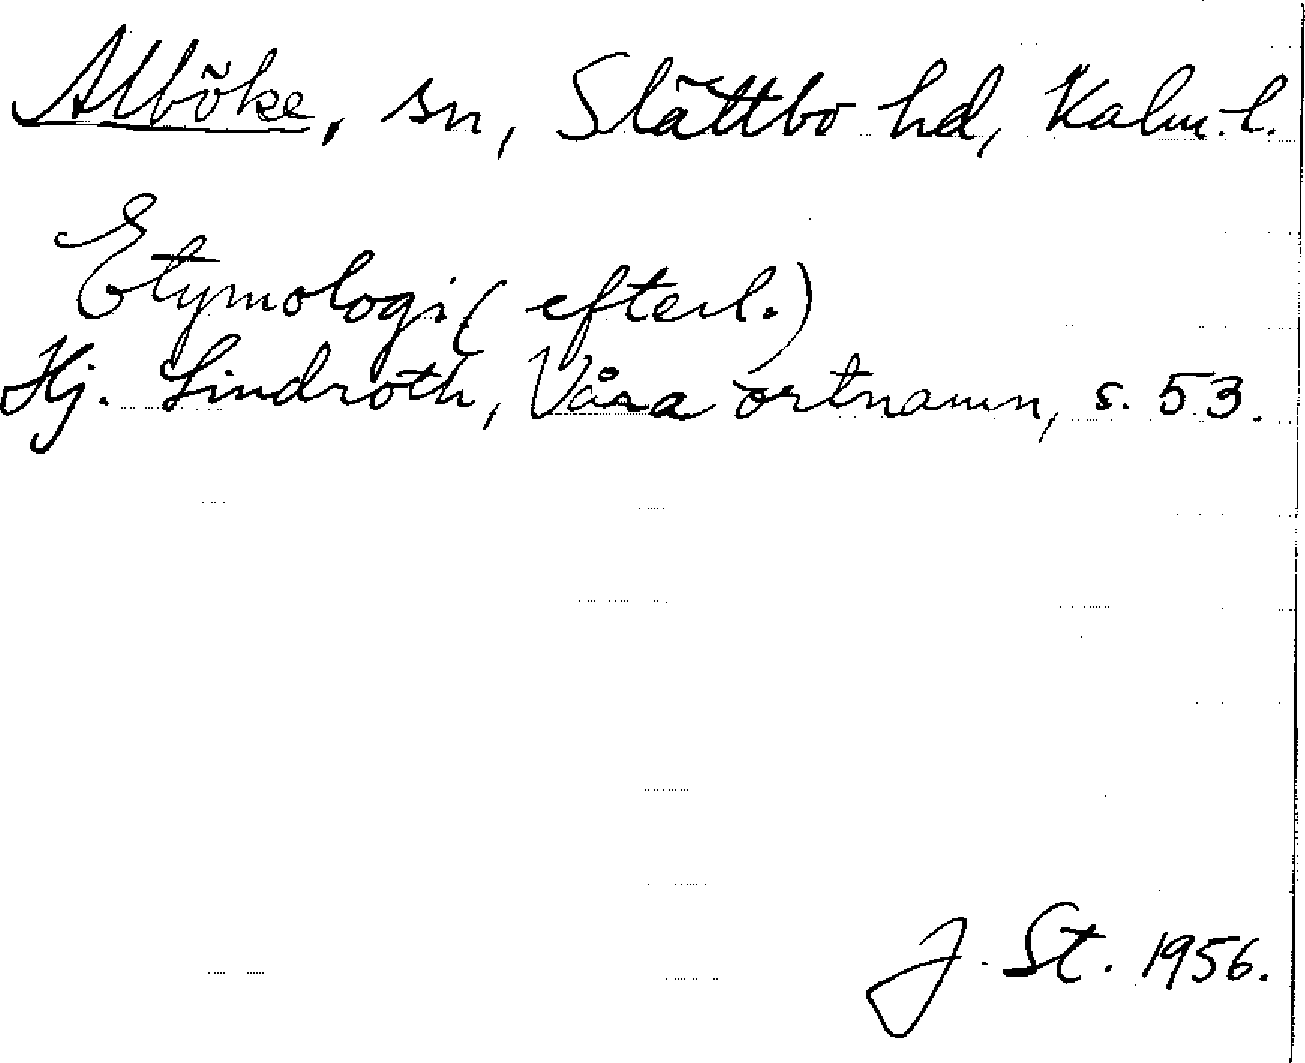 Alböke, sn, Slättbo hd, Kalm. l.
Etymologi (efterl.)
Hj. Lindroth, Våra ortnamn, s. 53.
J. St. 1956.